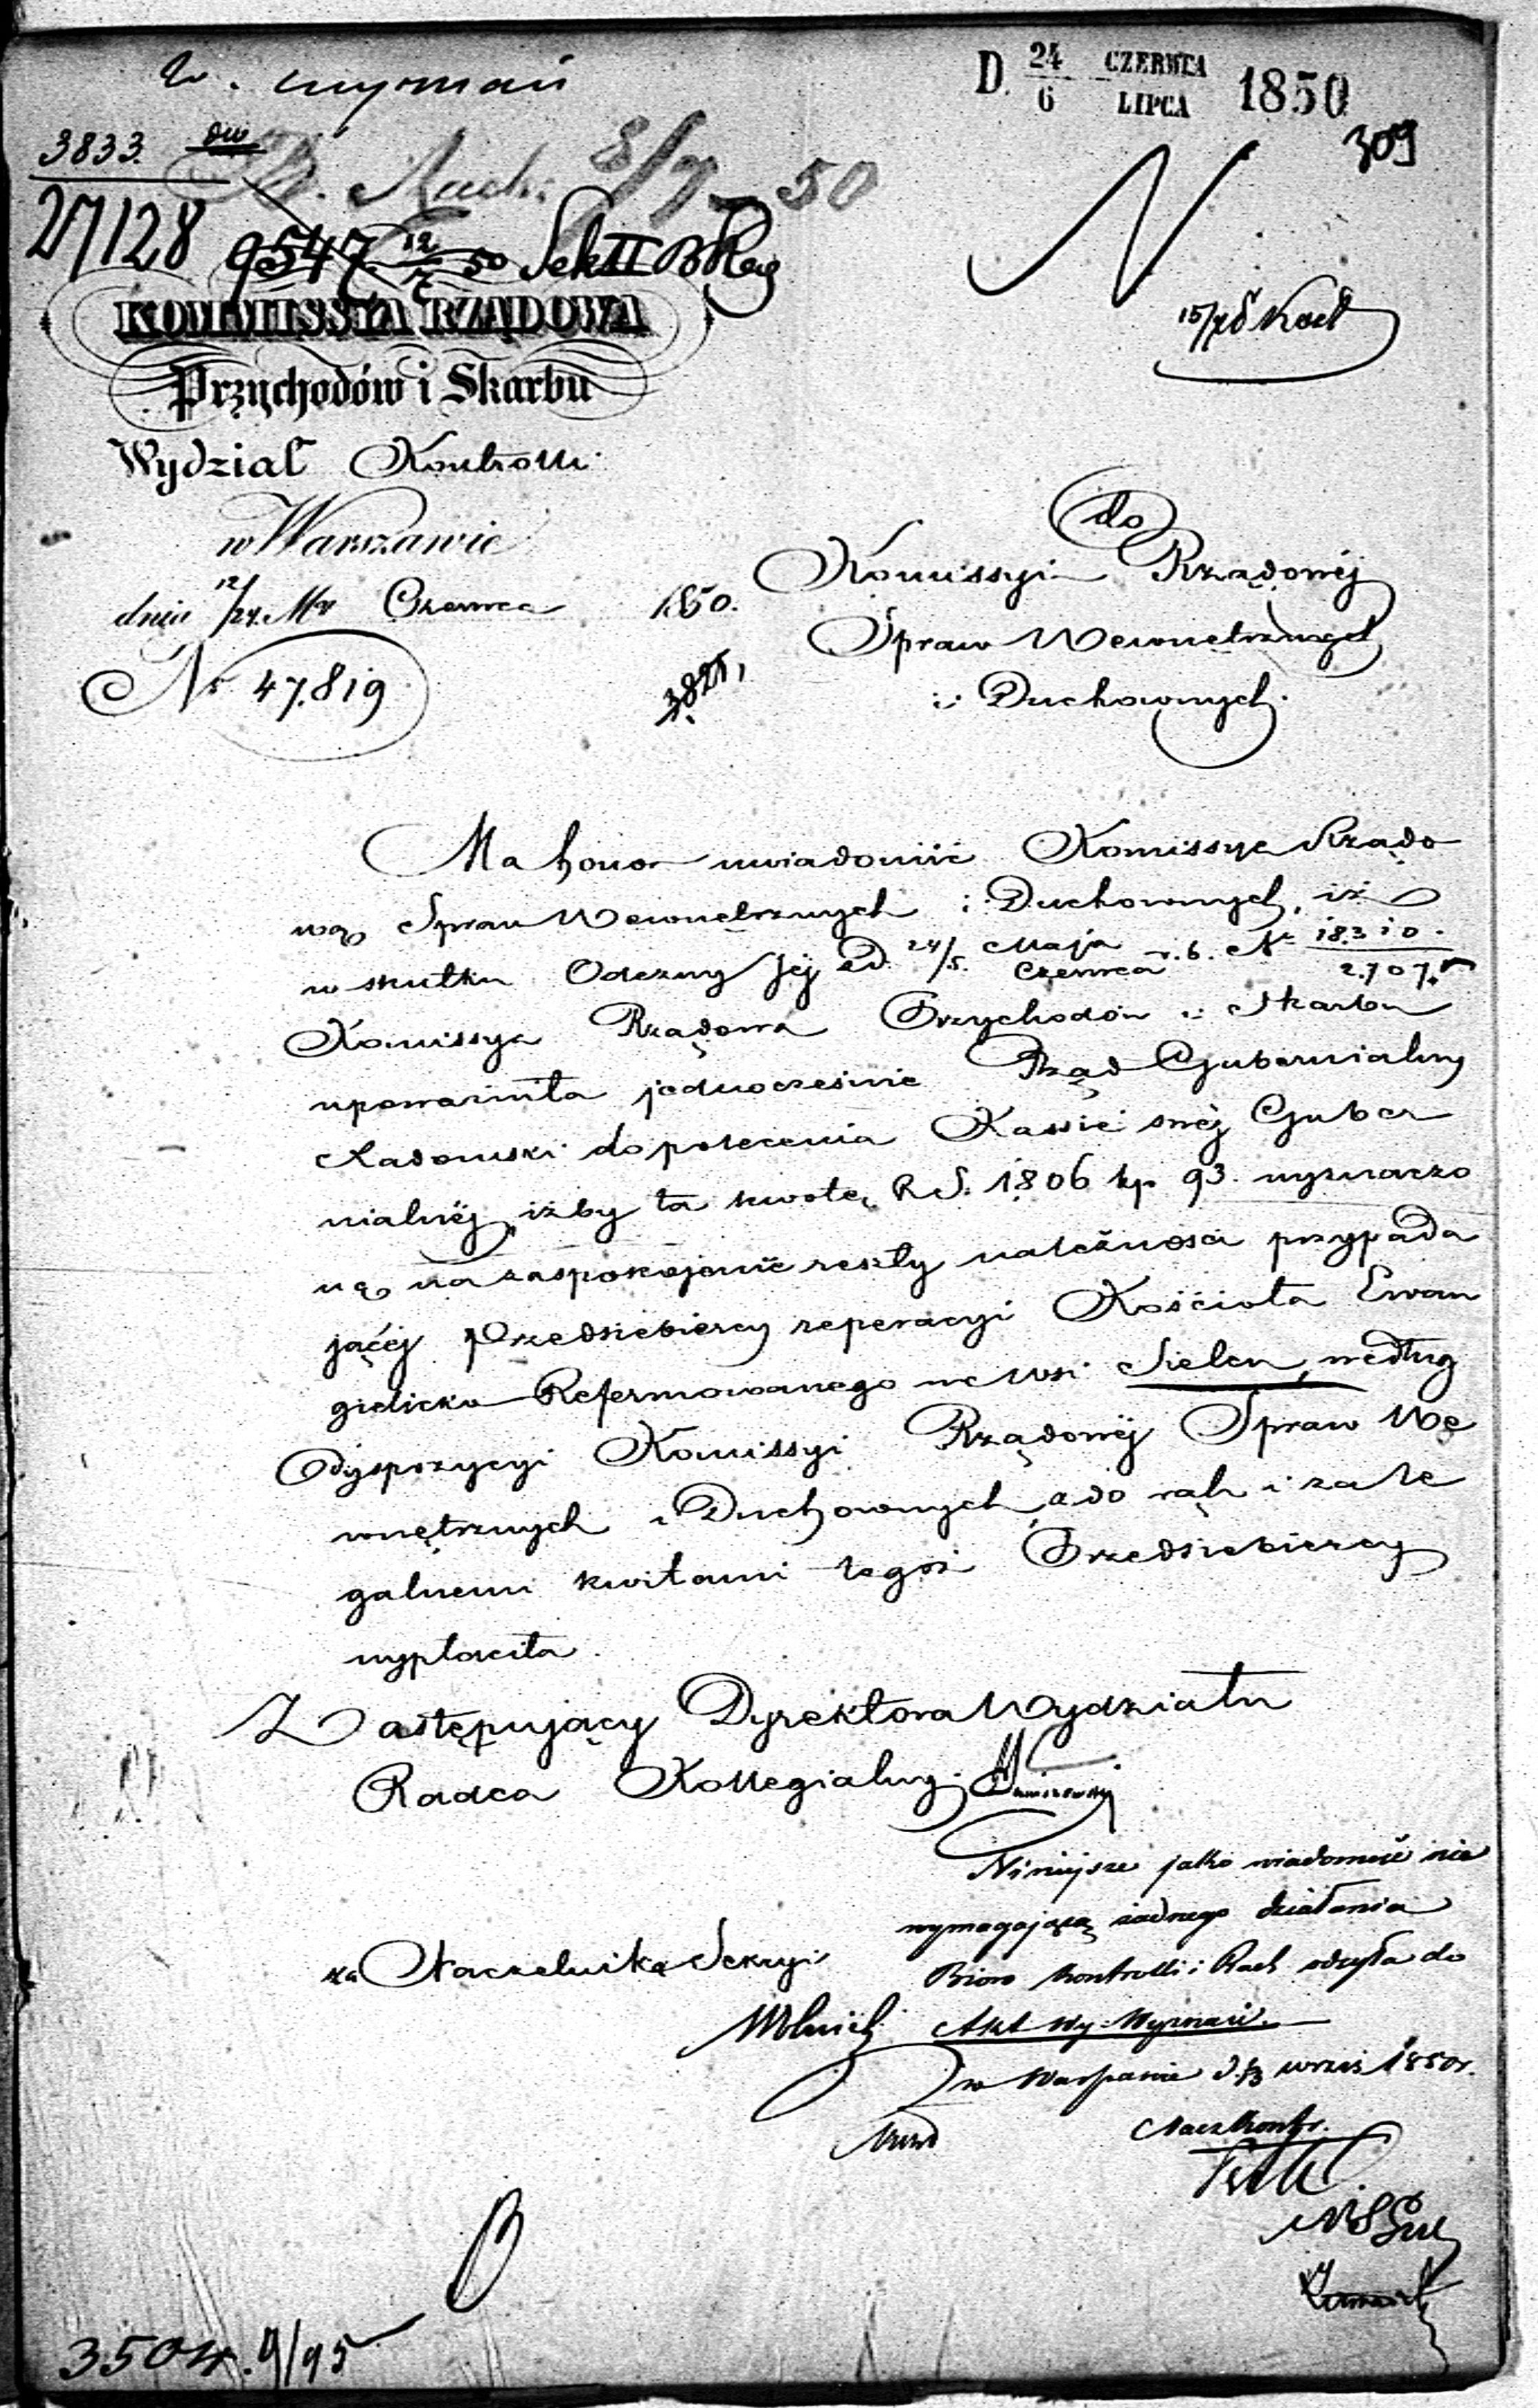 w. wyznań
D. 24/6 CZERWCA/LIPCA 1850
309
3833
27128
8/7 50
9547 12/7 50 Sek II
N
15/7
KOMMISSYA RZĄDOWA
Przychodów i Skarbu
Wydział Kontroli
w Warszawie
dnia 12/24 Czerwca 1850.
Nr 47.819
3825,
do
Komissyi Rządowéj
Spraw Wewnętrznych
i Duchownych.
Ma honor uwiadomić Komissyę Rządo
wą Spraw Wewnętrznych i Duchownych, iż
w skutku Odezwy Jéj z d. 24/5 Maja/Czerwca r.b. Nr 18310/2707.
Komissya Rządowa Przychodów i Skarbu
upoważniła jednocześnie Rząd Gubernialny
Radomski do polecenia Kassie swéj Guber
nialnéj, iżby ta kwotę R.S. 1806 kp. 93. wyznaczo
ną na zaspokojenie reszty należności przypada
jącéj Przedsiebiercy reperacyi Kościoła Ewan
gielicko-Reformowanego we wsi Sielcu, według
dyspozycyi Komissyi Rządowéj Spraw We
wnętrznych i Duchownych, a do rąk i za le
galnemi kwitami tegoż Przedsiebiercy
wypłaciła.
Zastępujący Dyrektora Wydziału
Radca Kollegialny
Niniejsze jako wiadomość nie
wymagającą żadnego działania
Biuro Kontrolli i Rach odsyła do
Akt Wy. Wyznań.
w Warszawie d. 1/3 wrześ 1850 r.
za Naczelnika Sekcyi
Nacz Kontr.
3504. 9/95